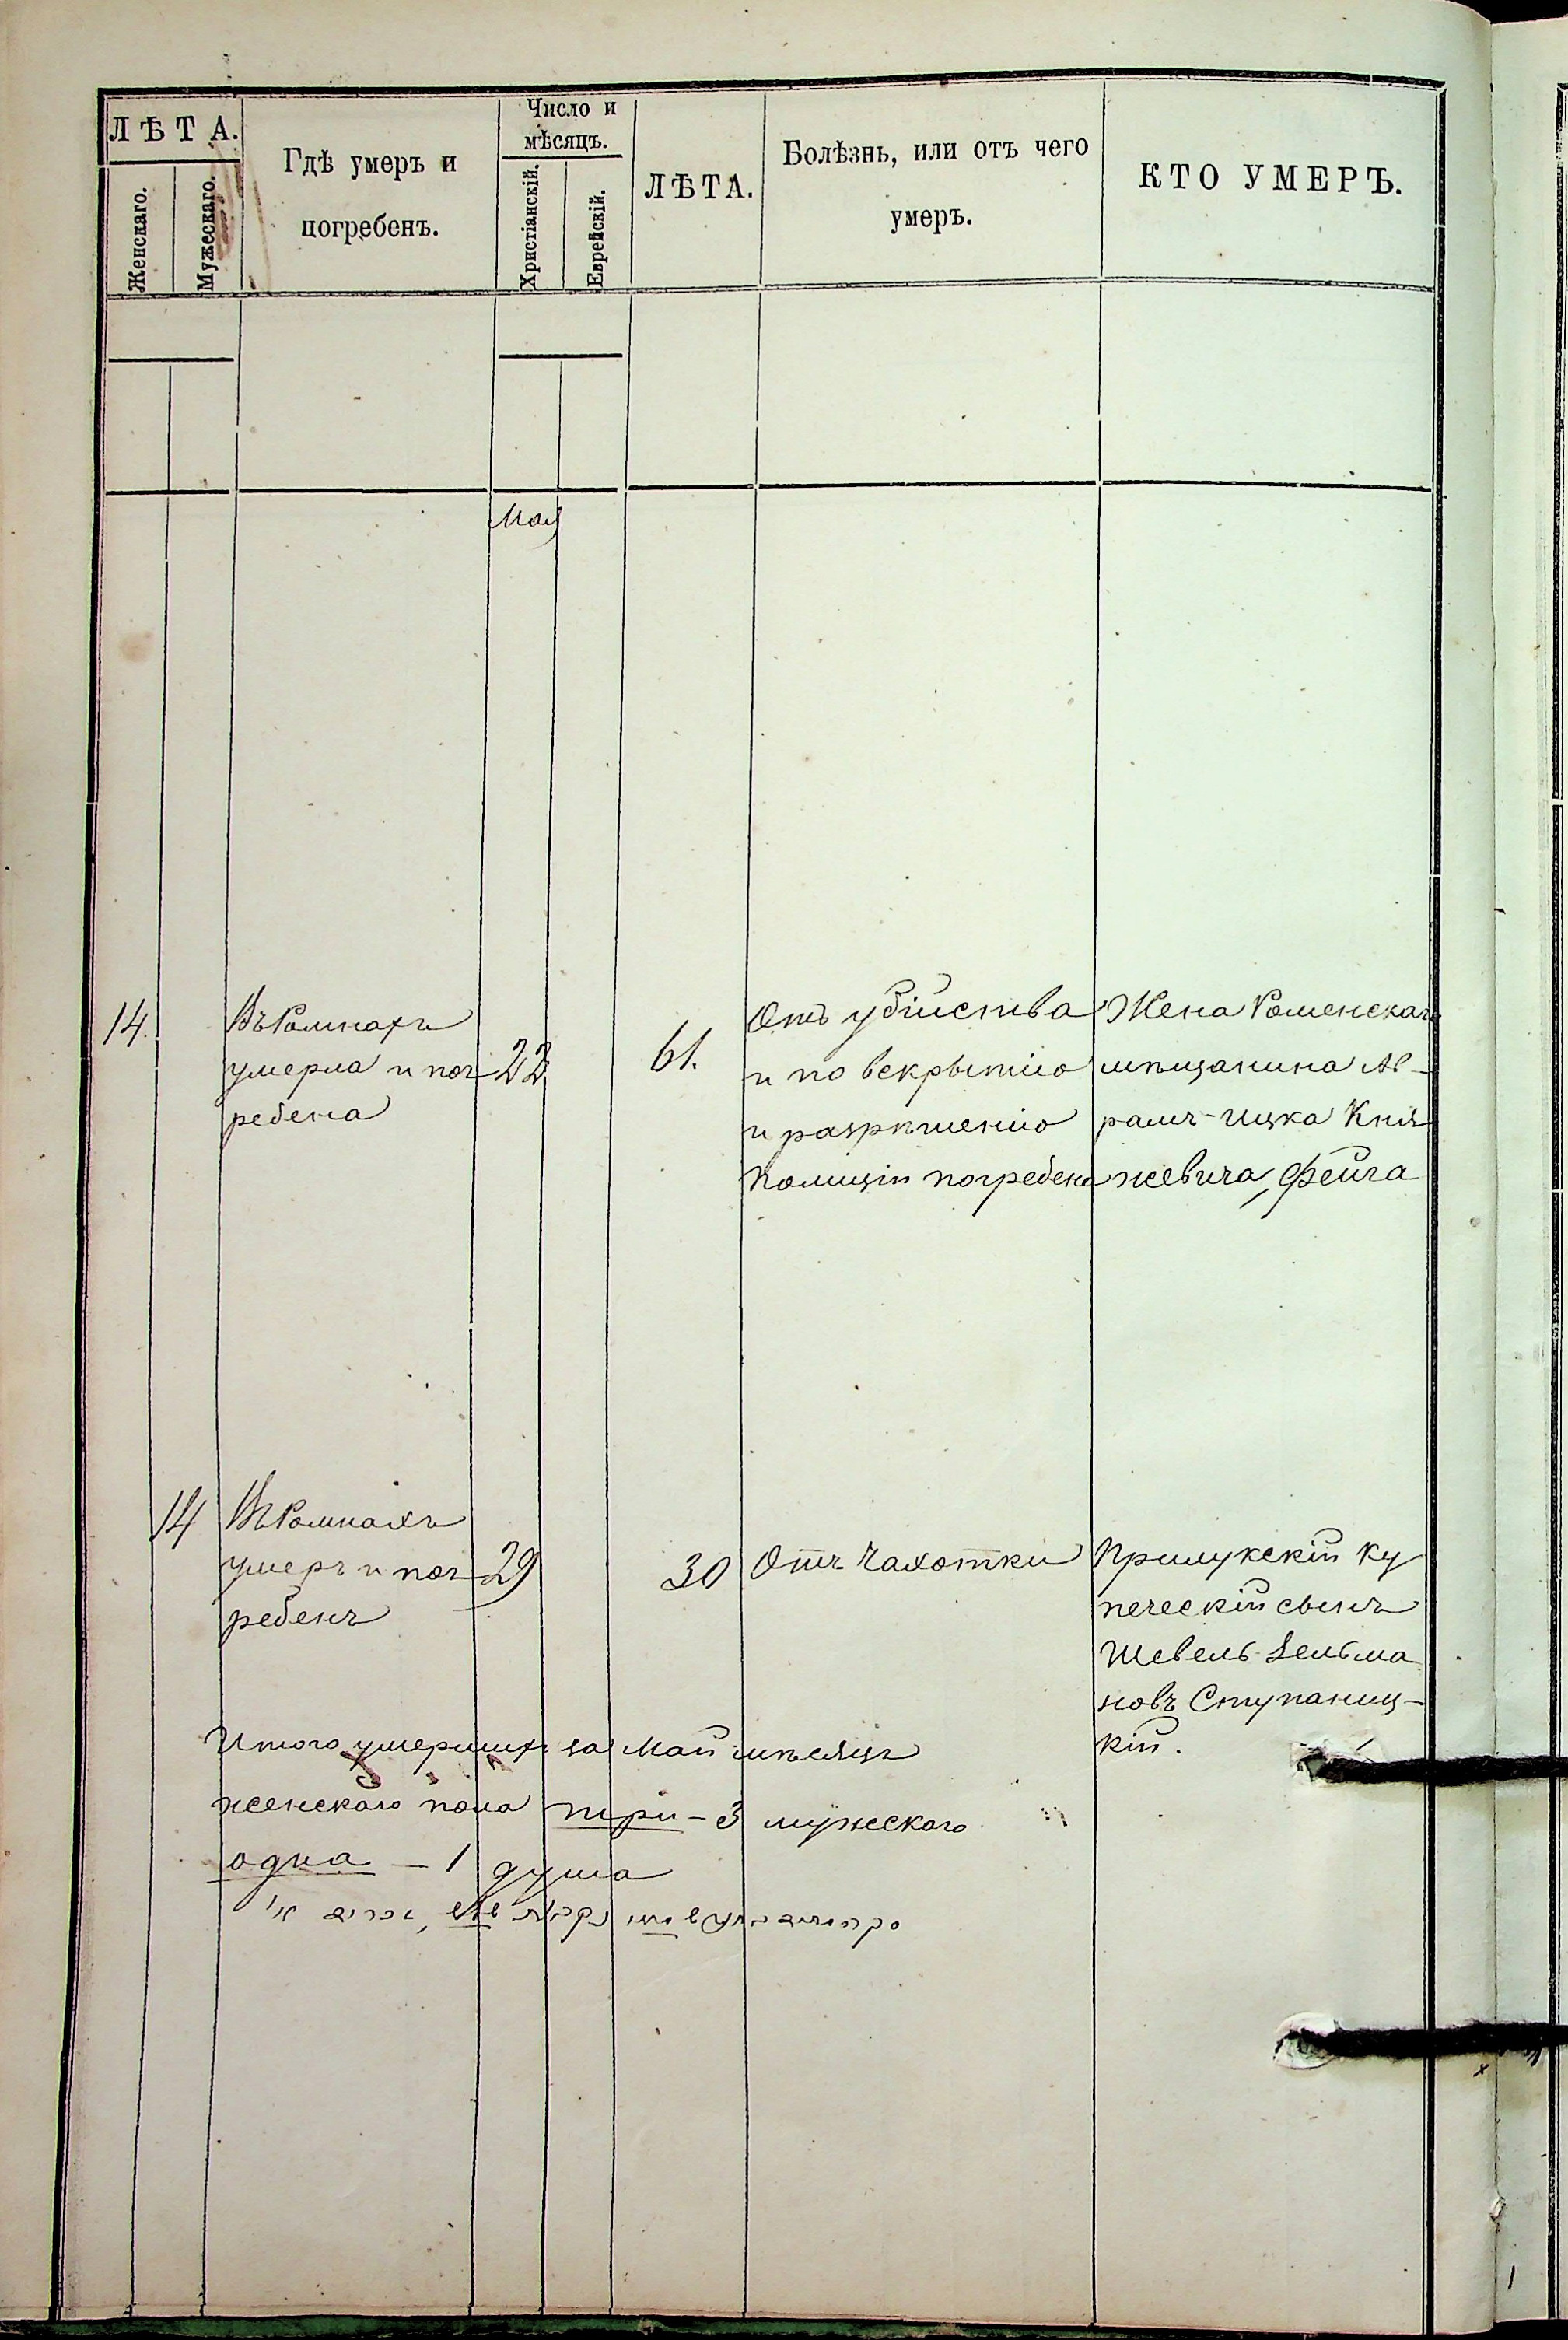 ЛѢТА.
Женскаго.
Мужескаго.
Гдѣ умеръ и
погребенъ.
Число и
мѣсяцъ.
Христіанскій.
Еврейскій.
ЛѢТА.
Болѣзнь, или отъ чего
умеръ.
КТО УМЕРЪ.
Мая
14.
Въ Ромнахъ
умерла и пог
ребена
22
61.
Отъ убійства
и по вскрытію
и разрѣшенію
Полиціи погребена
Жена Роменскаго
мѣщанина Ав-
рамъ-Ицка Кня
жевича, Фейга
14
Въ Ромнахъ
умеръ и пог
ребенъ
29
30
Отъ Чахотки
Прилукскій ку
печескій сынъ
Шевель Зельма
новъ Ступаниц-
кій.
Итого умершихъ за Май мѣсяцъ
женскаго пола три - 3 мужескаго
одна - 1 душа